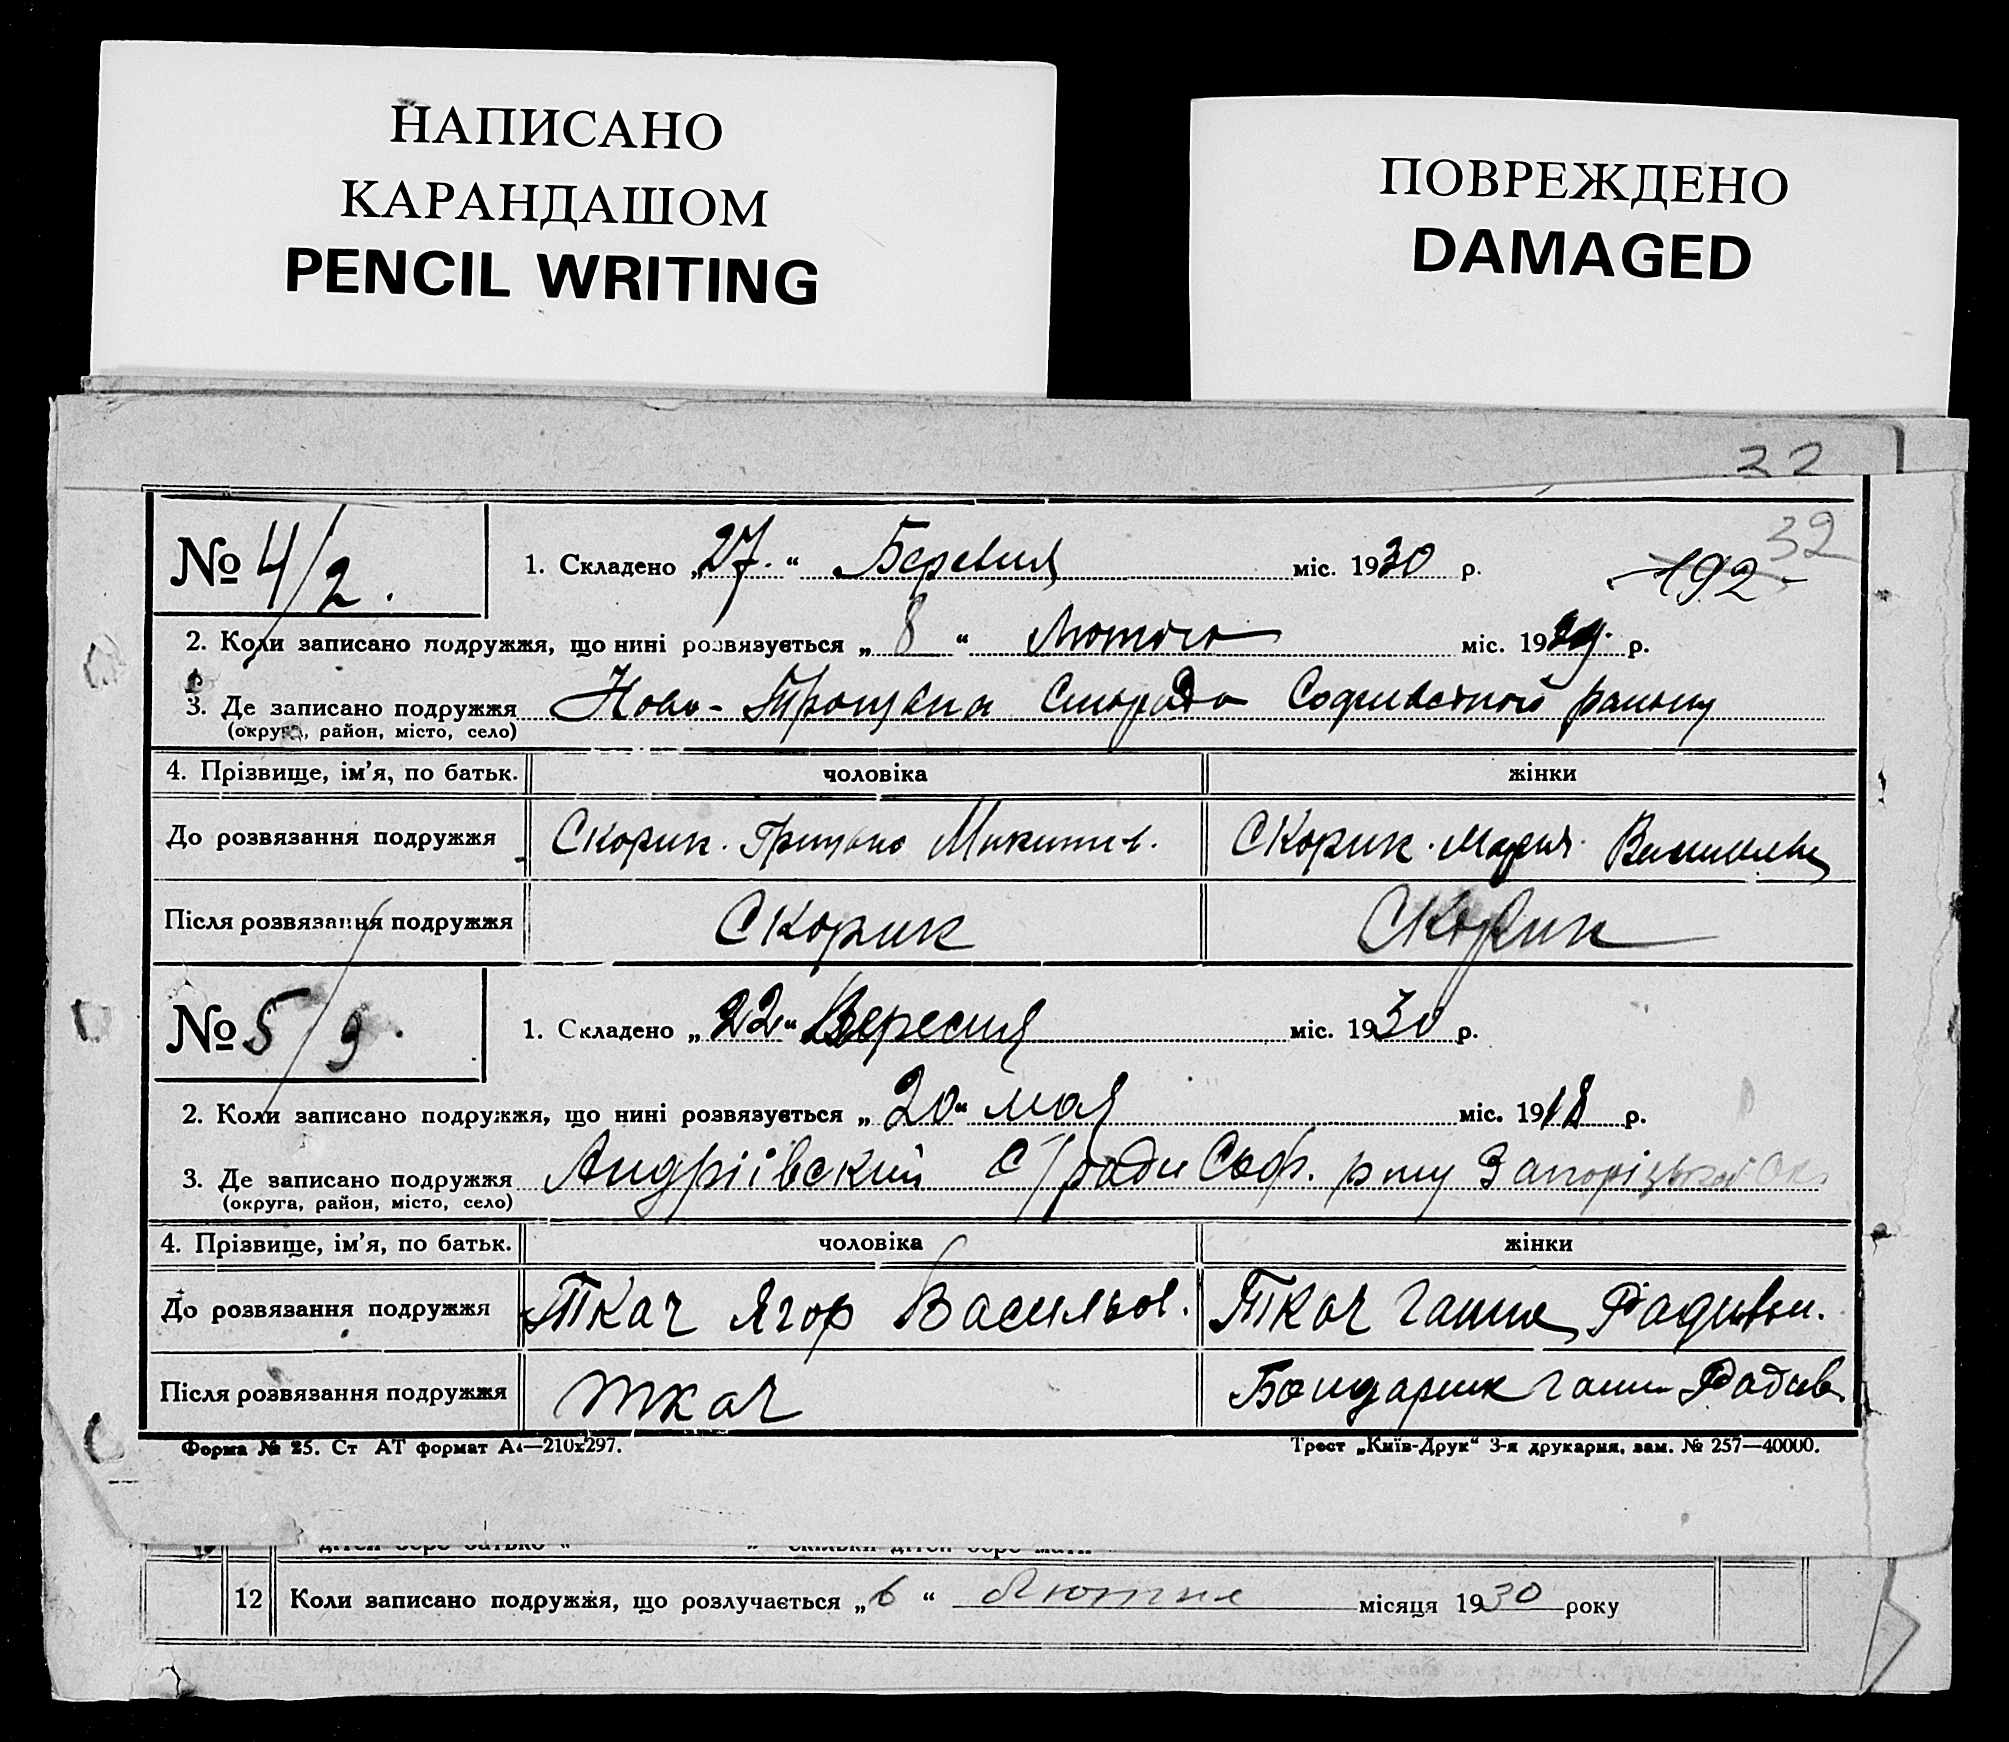 НАПИСАНО
КАРАНДАШОМ
PENCIL WRITING
ПОВРЕЖДЕНО
DAMAGED
32
32
192
№ 4/2.
1. Складено „27.“ Березня міс. 1930 р.
2. Коли записано подружжя, що нині розвязується „8“ Лютого міс. 1929 р.
3. Де записано подружжя Ново- Софиевского району
(округа, район, місто, село)
4. Прізвище, ім’я, по батьк. чоловіка жінки
До розвязання подружжя Скорик. Грицько Микитив. Скорик. Мария. Васильев
Після розвязання подружжя Скорик Скорик
№ 5/9.
1. Складено „22“ Вересня міс. 1930 р.
2. Коли записано подружжя, що нині розвязується „20“ мая міс. 1918 р.
3. Де записано подружжя Андріівский с/ради Соф. р-ну Запоріцької Ок.
(округа, район, місто, село)
4. Прізвище, ім’я, по батьк. чоловіка жінки
До розвязання подружжя Ткач Ягор Васильов. Ткач Ганна
Після розвязання подружжя Ткач Бондарик Ганн Радив
Форма № 25. Ст АТ формат А4—210х297. Трест „Київ-Друк“ 3-я друкарня, зам. № 257—40000.
12 Коли записано подружжя, що розлучається „6“ Лютня місяця 1930 року